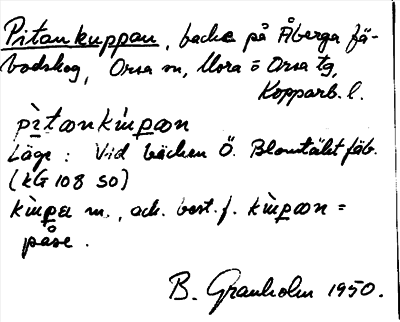 Pitankuppan, backe på Åberga fä-
bodskog, Orsa sn, Mora o Orsa tg,
Kopparb. l.
pìtan kìupan
Läge: Vid bäcken Ö. Blomtäkt fäb.
(KG 108 SO)
kìupa m., ack. best. f. kìupan =
påse.
B. Granholm 1950.